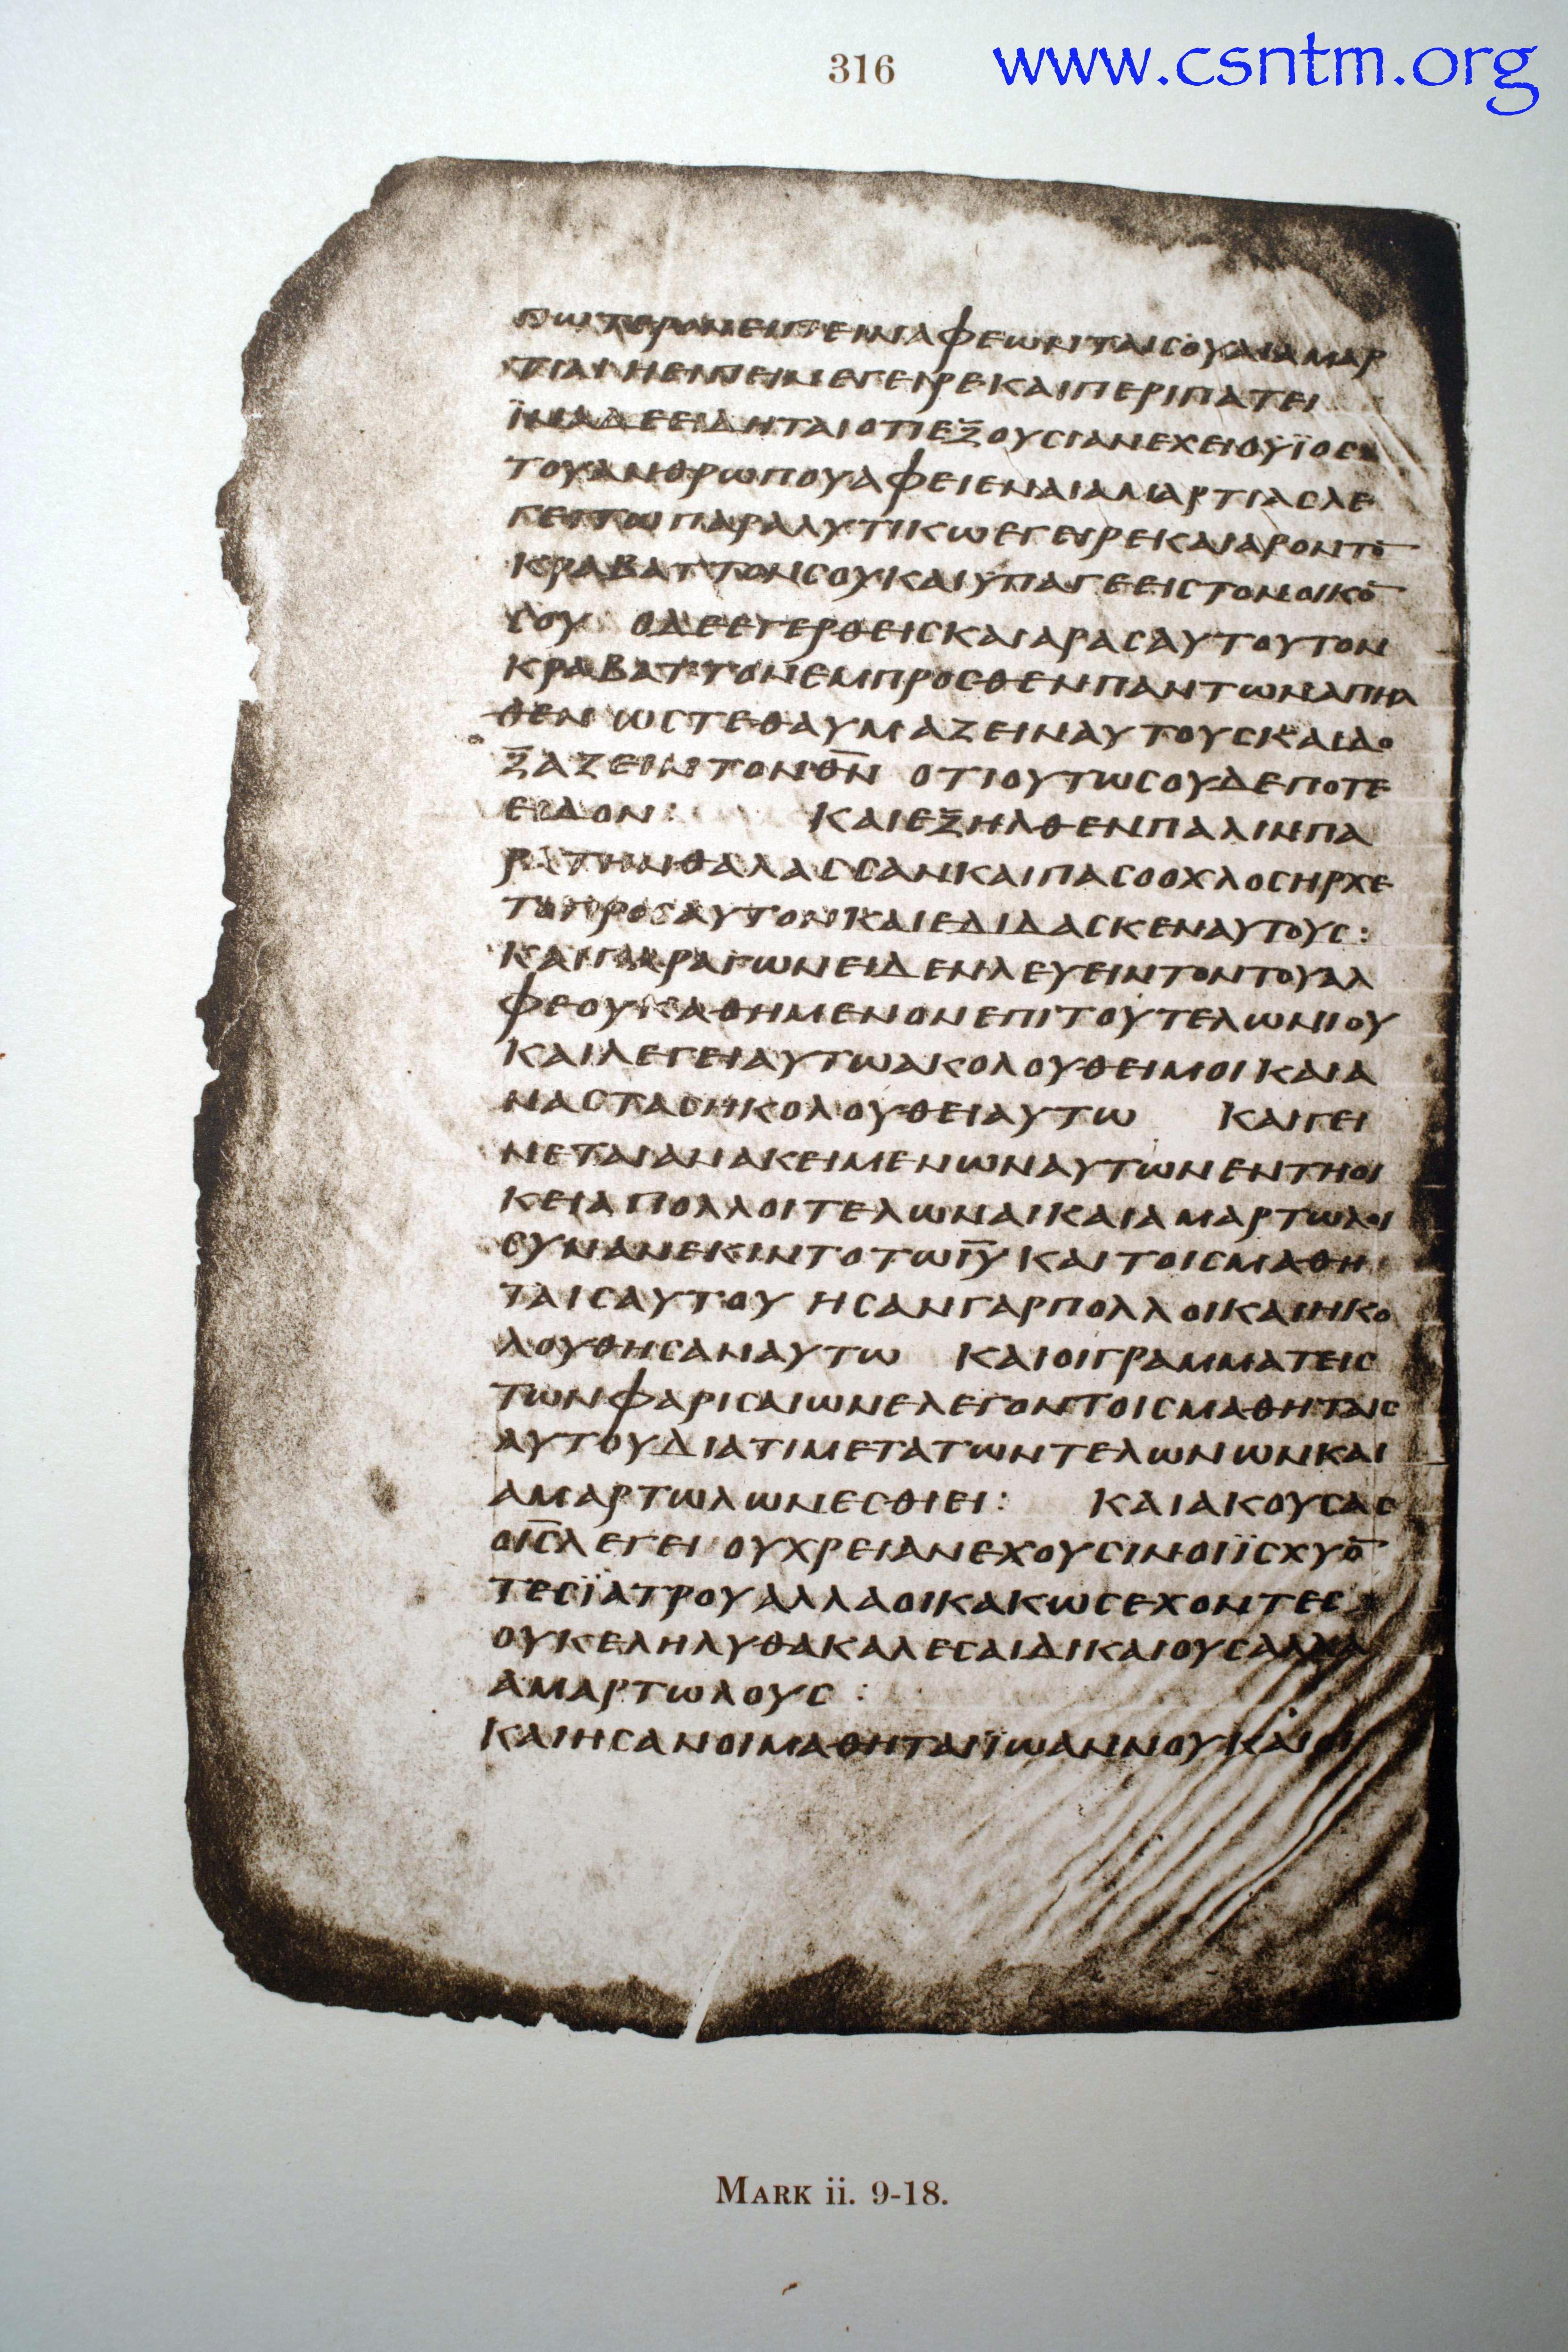 316
www.csntm.org
ΕΙΠΕΙΝΑΦΕΩΝΤΑΙϹΟΥΑΙΑΜΑΡ
ΤΙΑΙΗΕΙΠΕΙΝΕΓΕΙΡΕΚΑΙΠΕΡΙΠΑΤΕΙ
ΪΝΑΔΕΕΙΔΗΤΑΙΟΤΙΕΞΟΥϹΙΑΝΕΧΕΙΟΥΪΟϹ
ΤΟΥΑΝΘΡΩΠΟΥΑΦΕΙΕΝΑΙΑΜΑΡΤΙΑϹΛΕ
ΓΕΙΤΩΠΑΡΑΛΥΤΙΚΩΕΓΕΙΡΕΚΑΙΑΡΟΝΤΟ̅
ΚΡΑΒΑΤΤΟΝϹΟΥΚΑΙΥΠΑΓΕΕΙϹΤΟΝΟΙΚΟ̅
ϹΟΥ ΟΔΕΕΓΕΡΘΕΙϹΚΑΙΑΡΑϹΑΥΤΟΥΤΟΝ
ΚΡΑΒΑΤΤΟΝΕΜΠΡΟϹΘΕΝΠΑΝΤΩΝΑΠΗΛ
ΘΕΝ ΩϹΤΕΘΑΥΜΑΖΕΙΝΑΥΤΟΥϹΚΑΙΔΟ
ΞΑΖΕΙΝΤΟΝΘ̅Ν̅ ΟΤΙΟΥΤΩϹΟΥΔΕΠΟΤΕ
ΕΙΔΟΝ: ΚΑΙΕΞΗΛΘΕΝΠΑΛΙΝΠΑ
ΡΑΤΗΝΘΑΛΑϹϹΑΝΚΑΙΠΑϹΟΟΧΛΟϹΗΡΧΕ
ΤΟΠΡΟϹΑΥΤΟΝΚΑΙΕΔΙΔΑϹΚΕΝΑΥΤΟΥϹ:
ΚΑΙΠΑΡΑΓΩΝΕΙΔΕΝΛΕΥΕΙΝΤΟΝΤΟΥΑΛ
ΦΕΟΥΚΑΘΗΜΕΝΟΝΕΠΙΤΟΥΤΕΛΩΝΙΟΥ
ΚΑΙΛΕΓΕΙΑΥΤΩΑΚΟΛΟΥΘΕΙΜΟΙΚΑΙΑ
ΝΑϹΤΑϹΗΚΟΛΟΥΘΕΙΑΥΤΩ ΚΑΙΓΕΙ
ΝΕΤΑΙΑΝΑΚΕΙΜΕΝΩΝΑΥΤΩΝΕΝΤΗΟΙ
ΚΕΙΑΠΟΛΛΟΙΤΕΛΩΝΑΙΚΑΙΑΜΑΡΤΩΛΟΙ
ϹΥΝΑΝΕΚΙΝΤΟΤΩΙ̅Υ̅ ΚΑΙΤΟΙϹΜΑΘΗ
ΤΑΙϹΑΥΤΟΥ ΗϹΑΝΓΑΡΠΟΛΛΟΙΚΑΙΗΚΟ
ΛΟΥΘΗϹΑΝΑΥΤΩ ΚΑΙΟΙΓΡΑΜΜΑΤΕΙϹ
ΤΩΝΦΑΡΙϹΑΙΩΝΕΛΕΓΟΝΤΟΙϹΜΑΘΗΤΑΙϹ
ΑΥΤΟΥΔΙΑΤΙΜΕΤΑΤΩΝΤΕΛΩΝΩΝΚΑΙ
ΑΜΑΡΤΩΛΩΝΕϹΘΙΕΙ: ΚΑΙΑΚΟΥϹΑϹ
ΟΙ̅Ϲ̅ΛΕΓΕΙ ΟΥΧΡΕΙΑΝΕΧΟΥϹΙΝΟΙΪϹΧΥΟ̅
ΤΕϹΪΑΤΡΟΥΑΛΛΑΟΙΚΑΚΩϹΕΧΟΝΤΕϹ
ΟΥΚΕΛΗΛΥΘΑΚΑΛΕϹΑΙΔΙΚΑΙΟΥϹΑΛΛΑ
ΑΜΑΡΤΩΛΟΥϹ:
ΚΑΙΗϹΑΝΟΙΜΑΘΗΤΑΙΪΩΑΝΝΟΥΚΑΙΟΙ
MARK ii. 9-18.